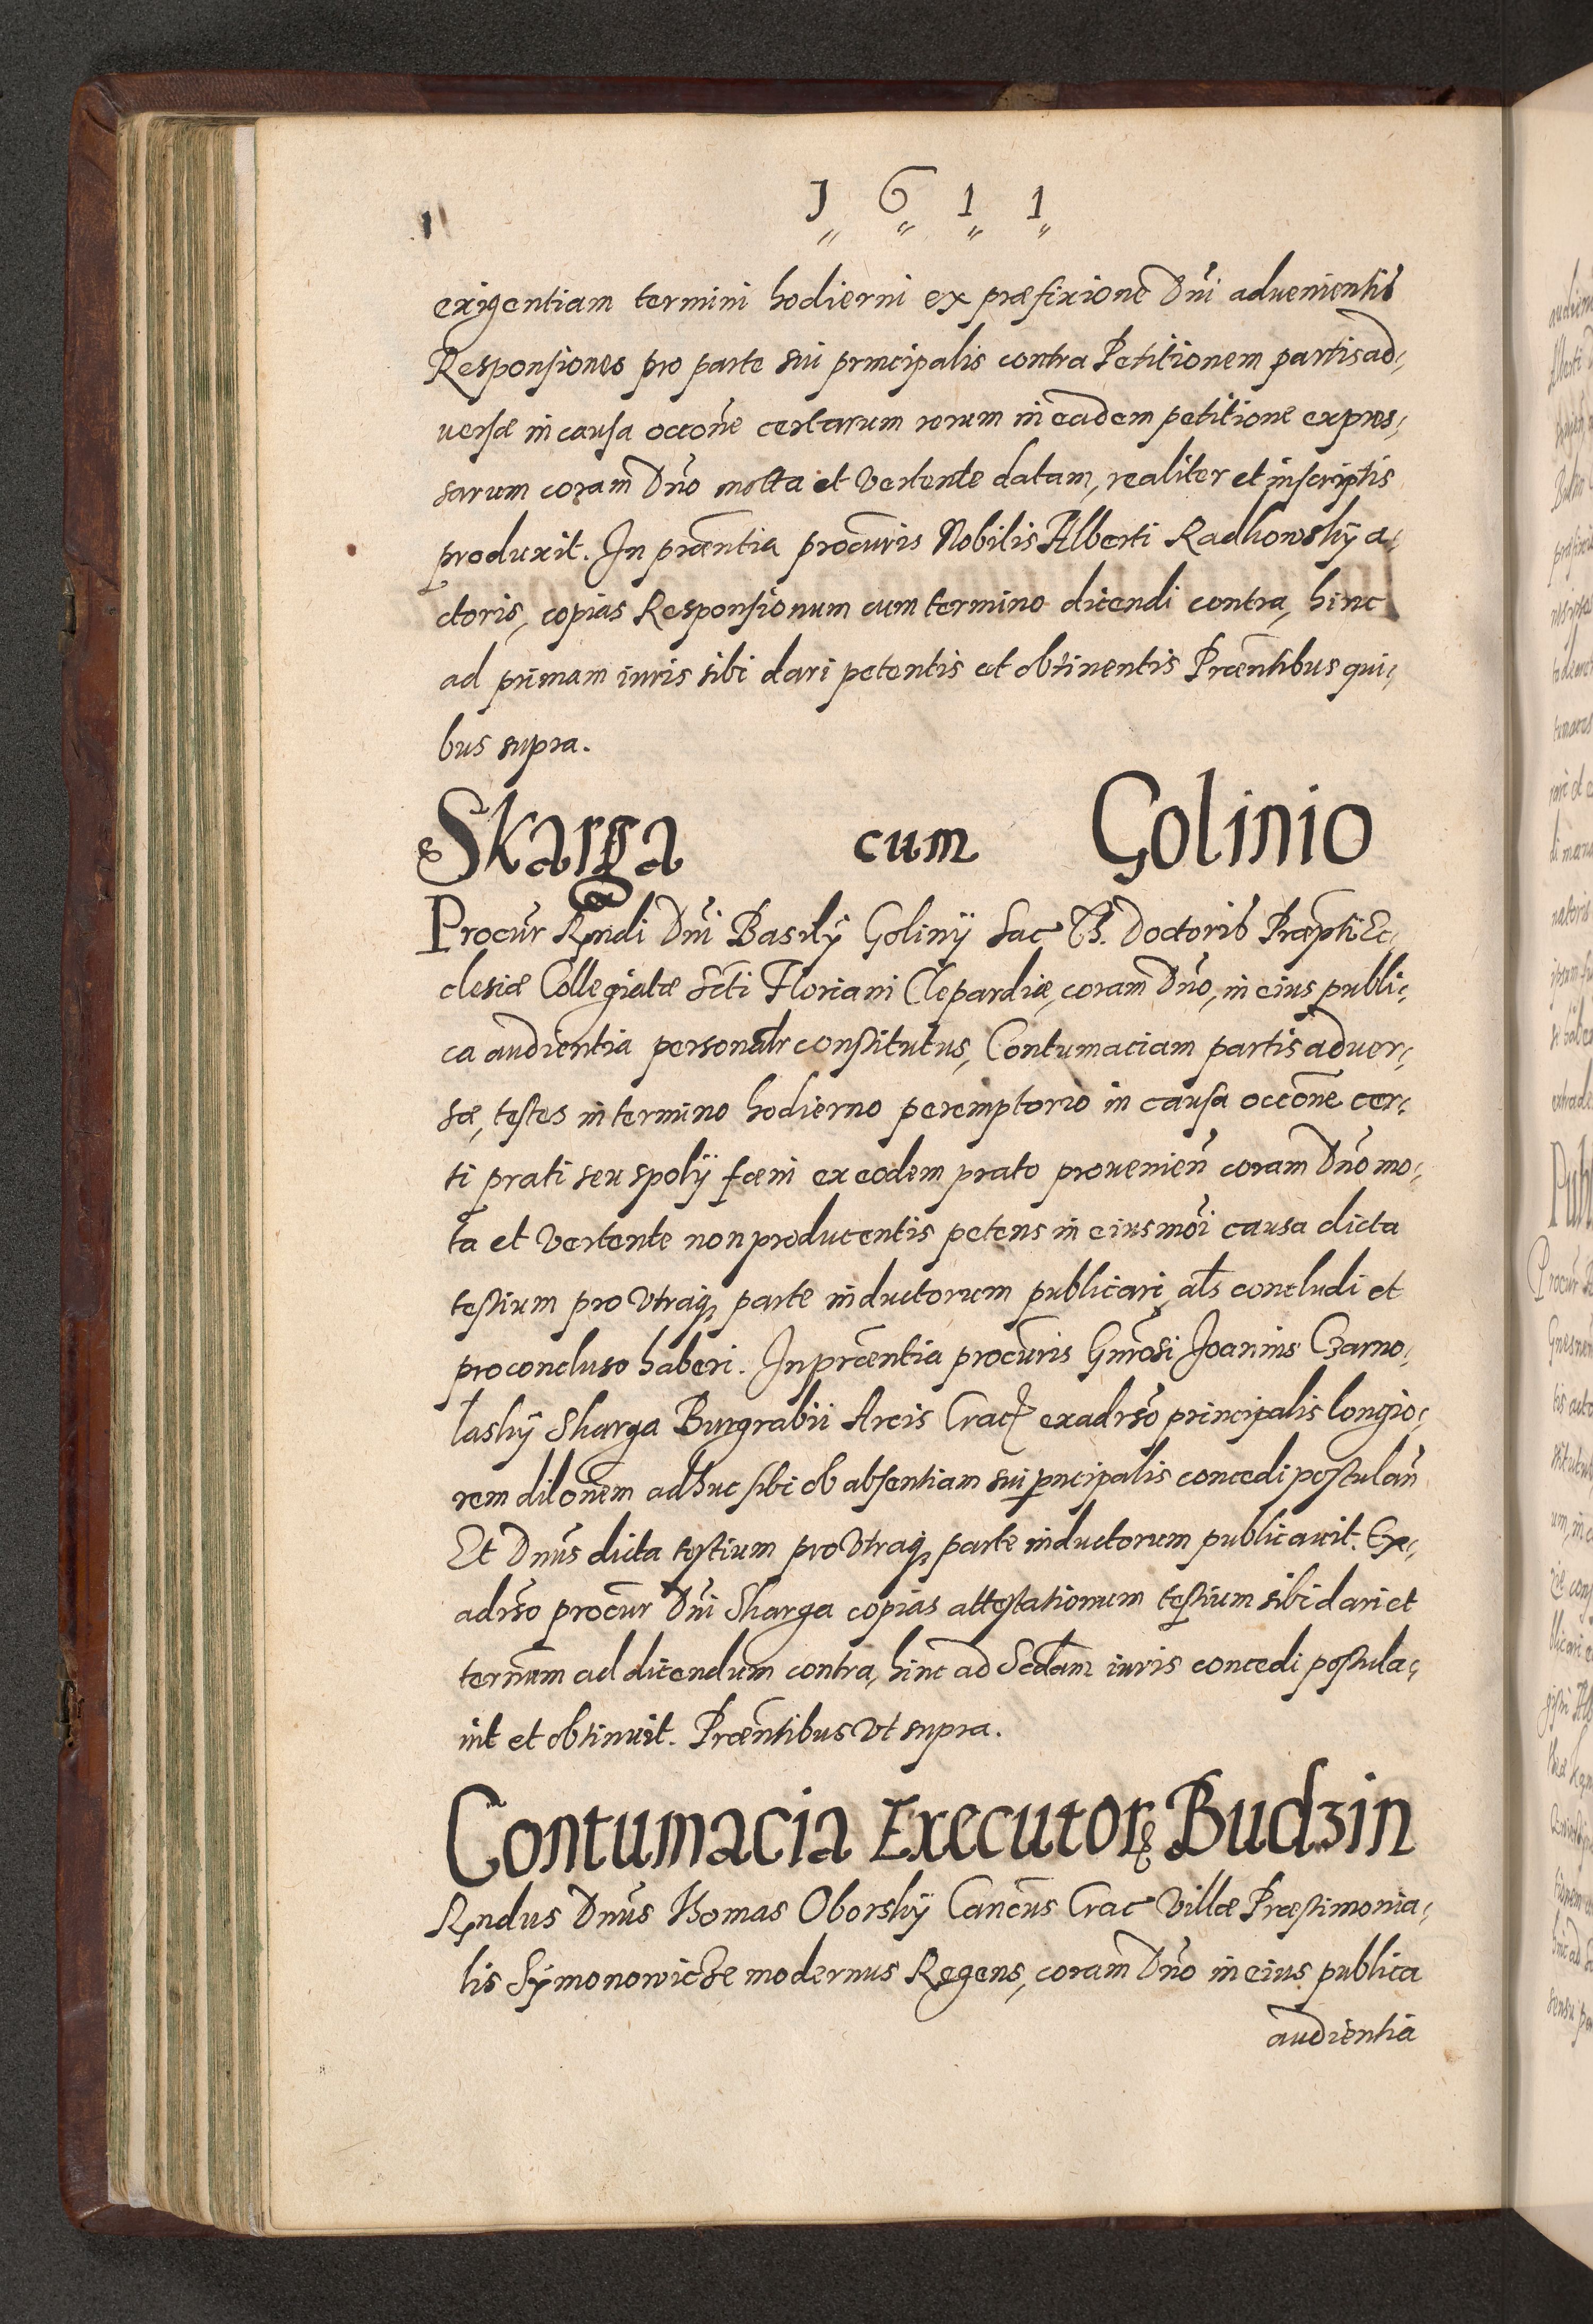 1611
exigentiam termini hodierni ex præfixione Dni aduenientis
Responsiones pro parte sui principalis contra Petitionem partis ad-
uersæ in causa occone certarum rerum in eadem petitione expres-
sarum coram Dno mota et vertente datam, realiter et inscriptis
produxit. In præntia procuris Nobilis Alberti Radkowskÿ a-
ctoris, copias Responsionum cum termino dicendi contra, hinc
ad primam iuris sibi dari petentis et obtinentis Præntibus qui-
bus supra.
Skarga cum Golinio
Procur Rndi Dni Basilÿ Golinÿ Sac Th. Doctoris Præpti Ec-
clesiæ Collegiatæ Scti Floriani Clepardiæ, coram Dno, in eius publi-
ca audientia personalr constitutus, Contumaciam partis aduer-
sæ, testes in termino hodierno peremptorio in causa occone cer-
ti prati seu spolÿ fœni ex eodem prato prouenien coram Dno mo-
ta et vertente non producentis petens in eiusmoi causa dicta
testium pro vtraq parte inductorum publicari, als concludi et
pro concluso haberi. In præntia procuris Gnrosi Joannis Czarno-
laskÿ Skarga Burgrabii Arcis Crac exadrso principalis longio-
rem dilonem adhuc sibi ob absentiam sui pncipalis concedi postulan
Et Dnus dicta testium pro vtraq parte inductorum publicauit. Ex-
adrso procur Dni Skarga copias attestationum testium sibi dari et
ternum ad dicendum contra, hinc ad Scdam iuris concedi postula-
uit et obtinuit. Præntibus vt supra.
Contumacia Executor Budzin
Rndus Dnus Thomas Oborskÿ Cancus Crac Villæ Præstimonia-
lis Sÿmonowicze modernus Regens, coram Dno in eius publica
audientia